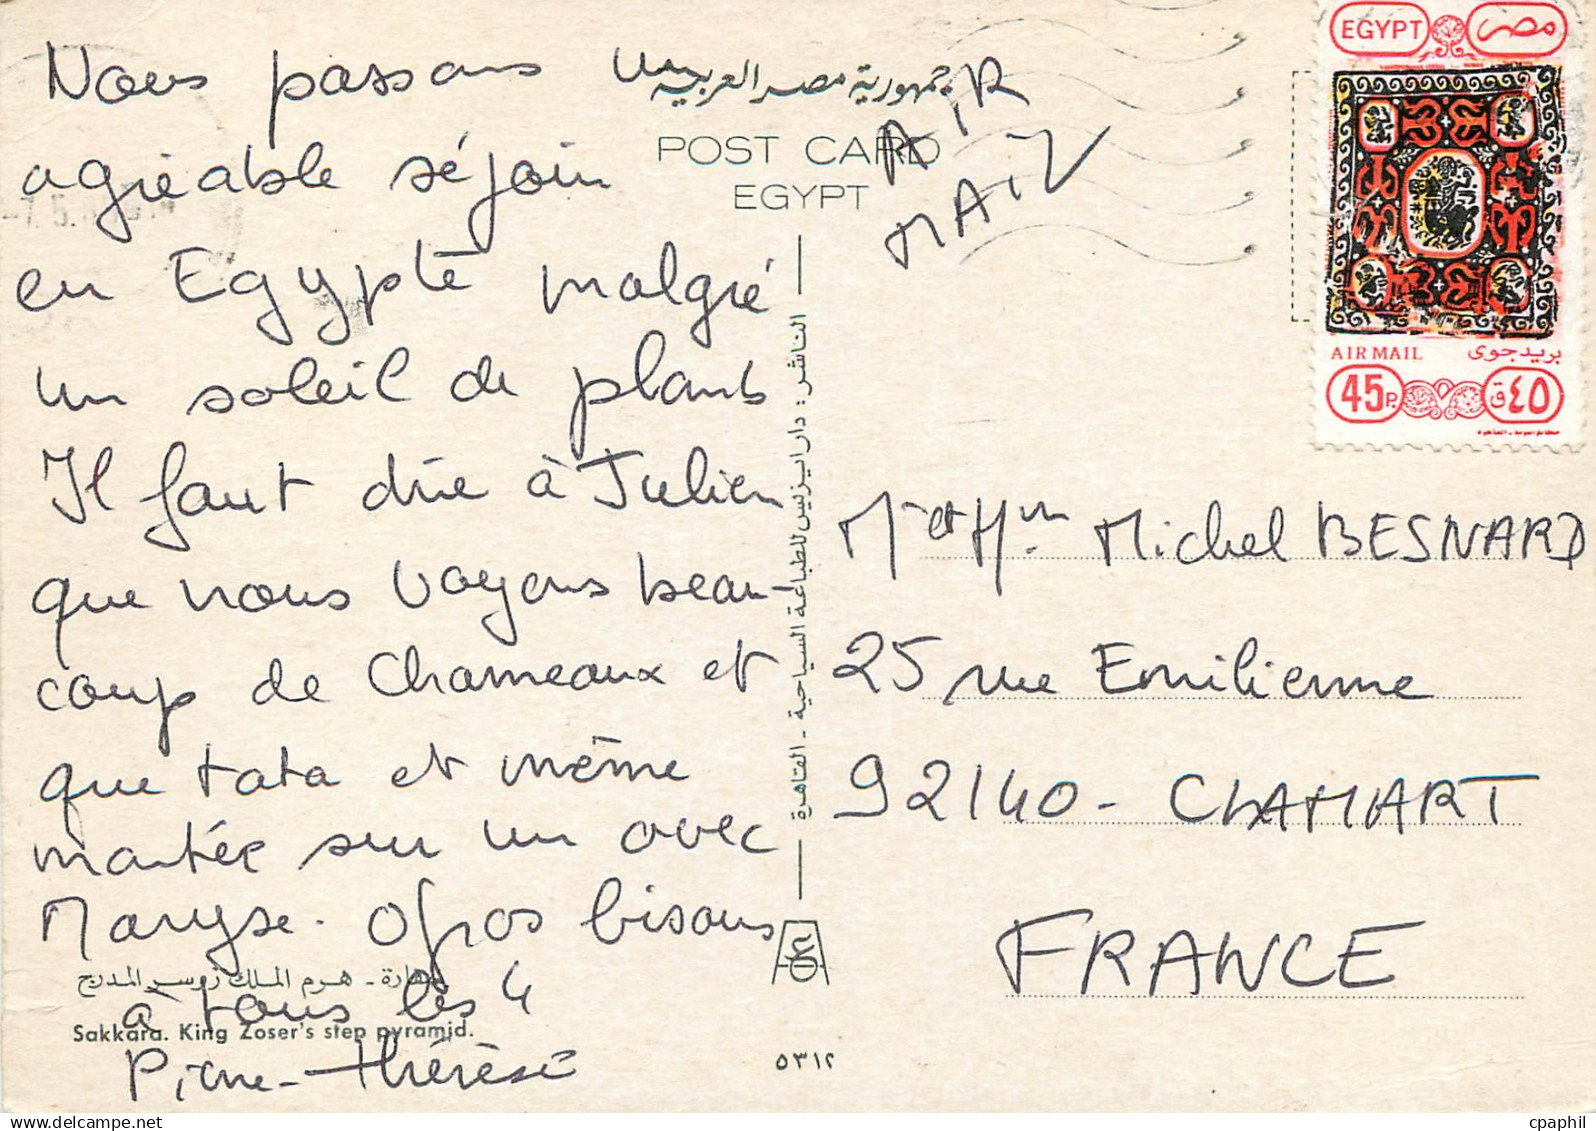 Nous passons un
agréable séjour
en Egypte malgré
un soleil de plomb
Il faut dire à Julien
que nous voyons beau-
coup de chameaux et
que tata est même
montée sur un avec
Maryse. Gros bisous
à tous les 4
Pierre-Thérèse
سقارة - هرم الملك زوسر المدرج
Sakkara. King Zoser's step pyramid.
جمهورية مصر العربية
POST CARD
EGYPT
AIR
MAIL
الناشر: دار ايزيس للطباعة السياحية - القاهرة
٥٣١٢
EGYPT مصر
AIR MAIL بريد جوى
45P. ٤٥ق
Mr et Mme Michel BESNARD
25 rue Emilienne
92140 - CLAMART
FRANCE
cpaphil